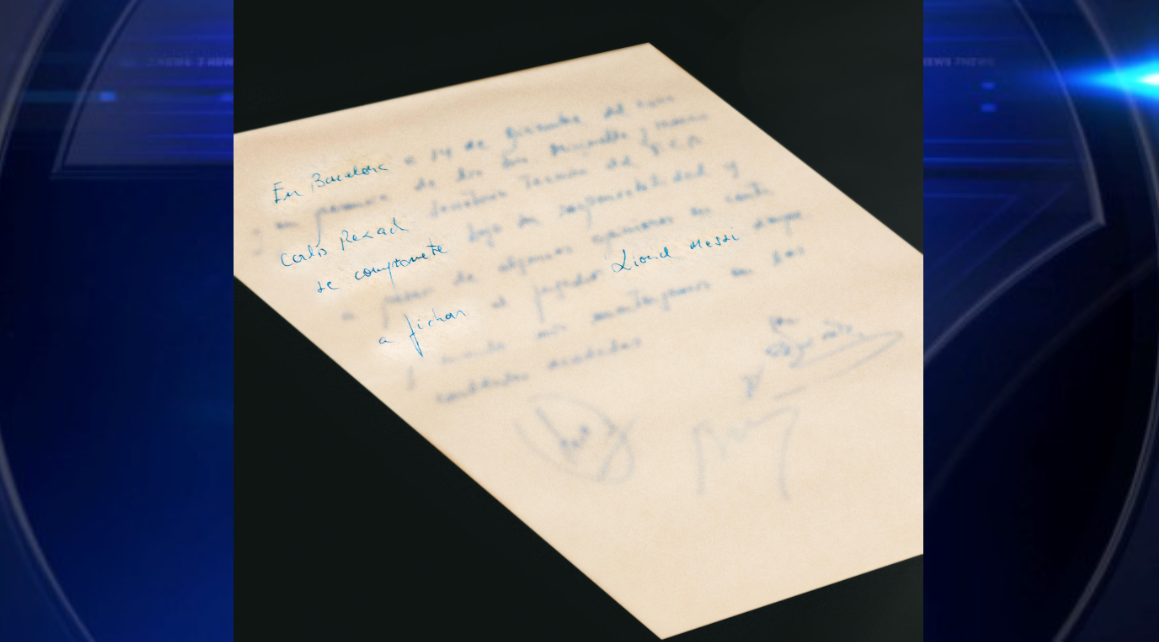 En Barcelona a 14 de diciembre del
en presencia de los Minguella y
Carlos Rexach Secretario Tecnico del F.C.B
se compromete bajo su responsabilidad y
a pesar de algunas opiniones en contra
a fichar al jugador Lionel Messi
y cuando nos mantengamos en las
cantidades acordadas